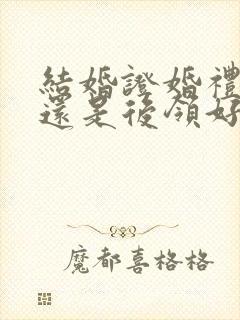 結婚證婚禮
還是後領好
魔都喜格格